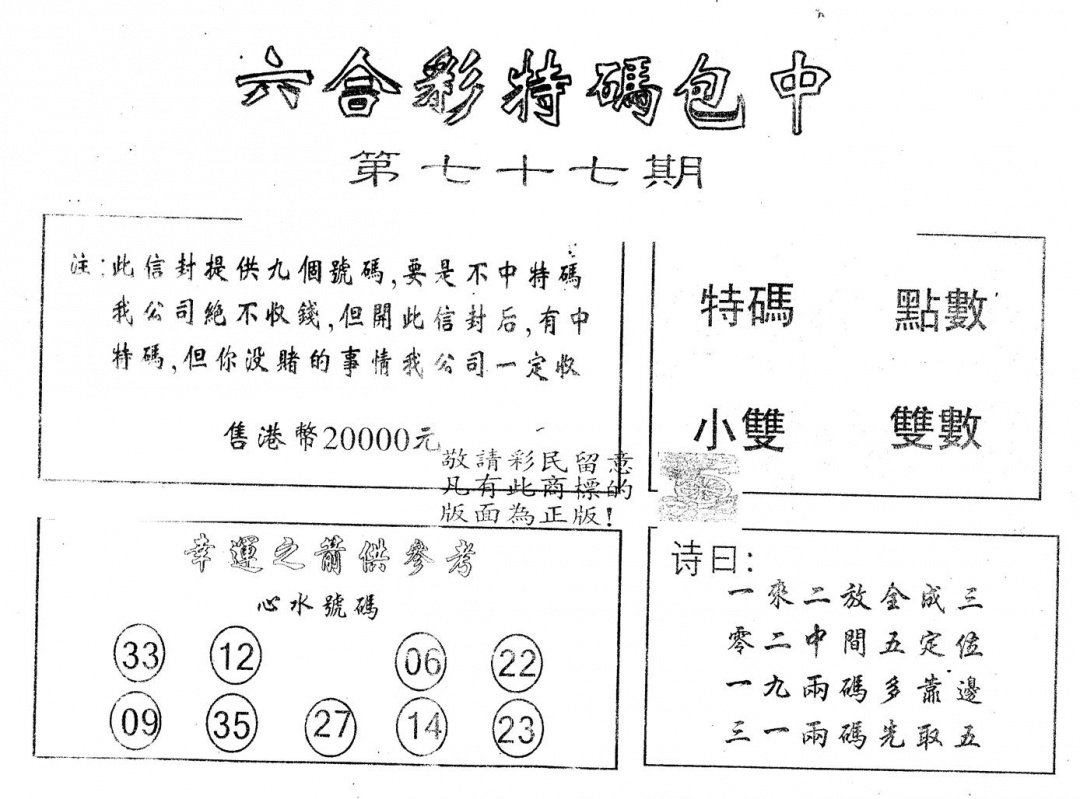 六合彩特碼包中
第七十七期
注:此信封提供九個號碼,要是不中特碼
我公司絕不收錢,但開此信封后,有中
特碼,但你没賭的事情我公司一定收
售港幣20000元
特碼 點數
小雙 雙數
敬請彩民留意
凡有此商標的
版面為正版!
幸運之箭供參考
心水號碼
33 12 06 22
09 35 27 14 23
诗曰:
一來二放全成三
零二中間五定位
一九兩碼多靠邊
三一兩碼先取五